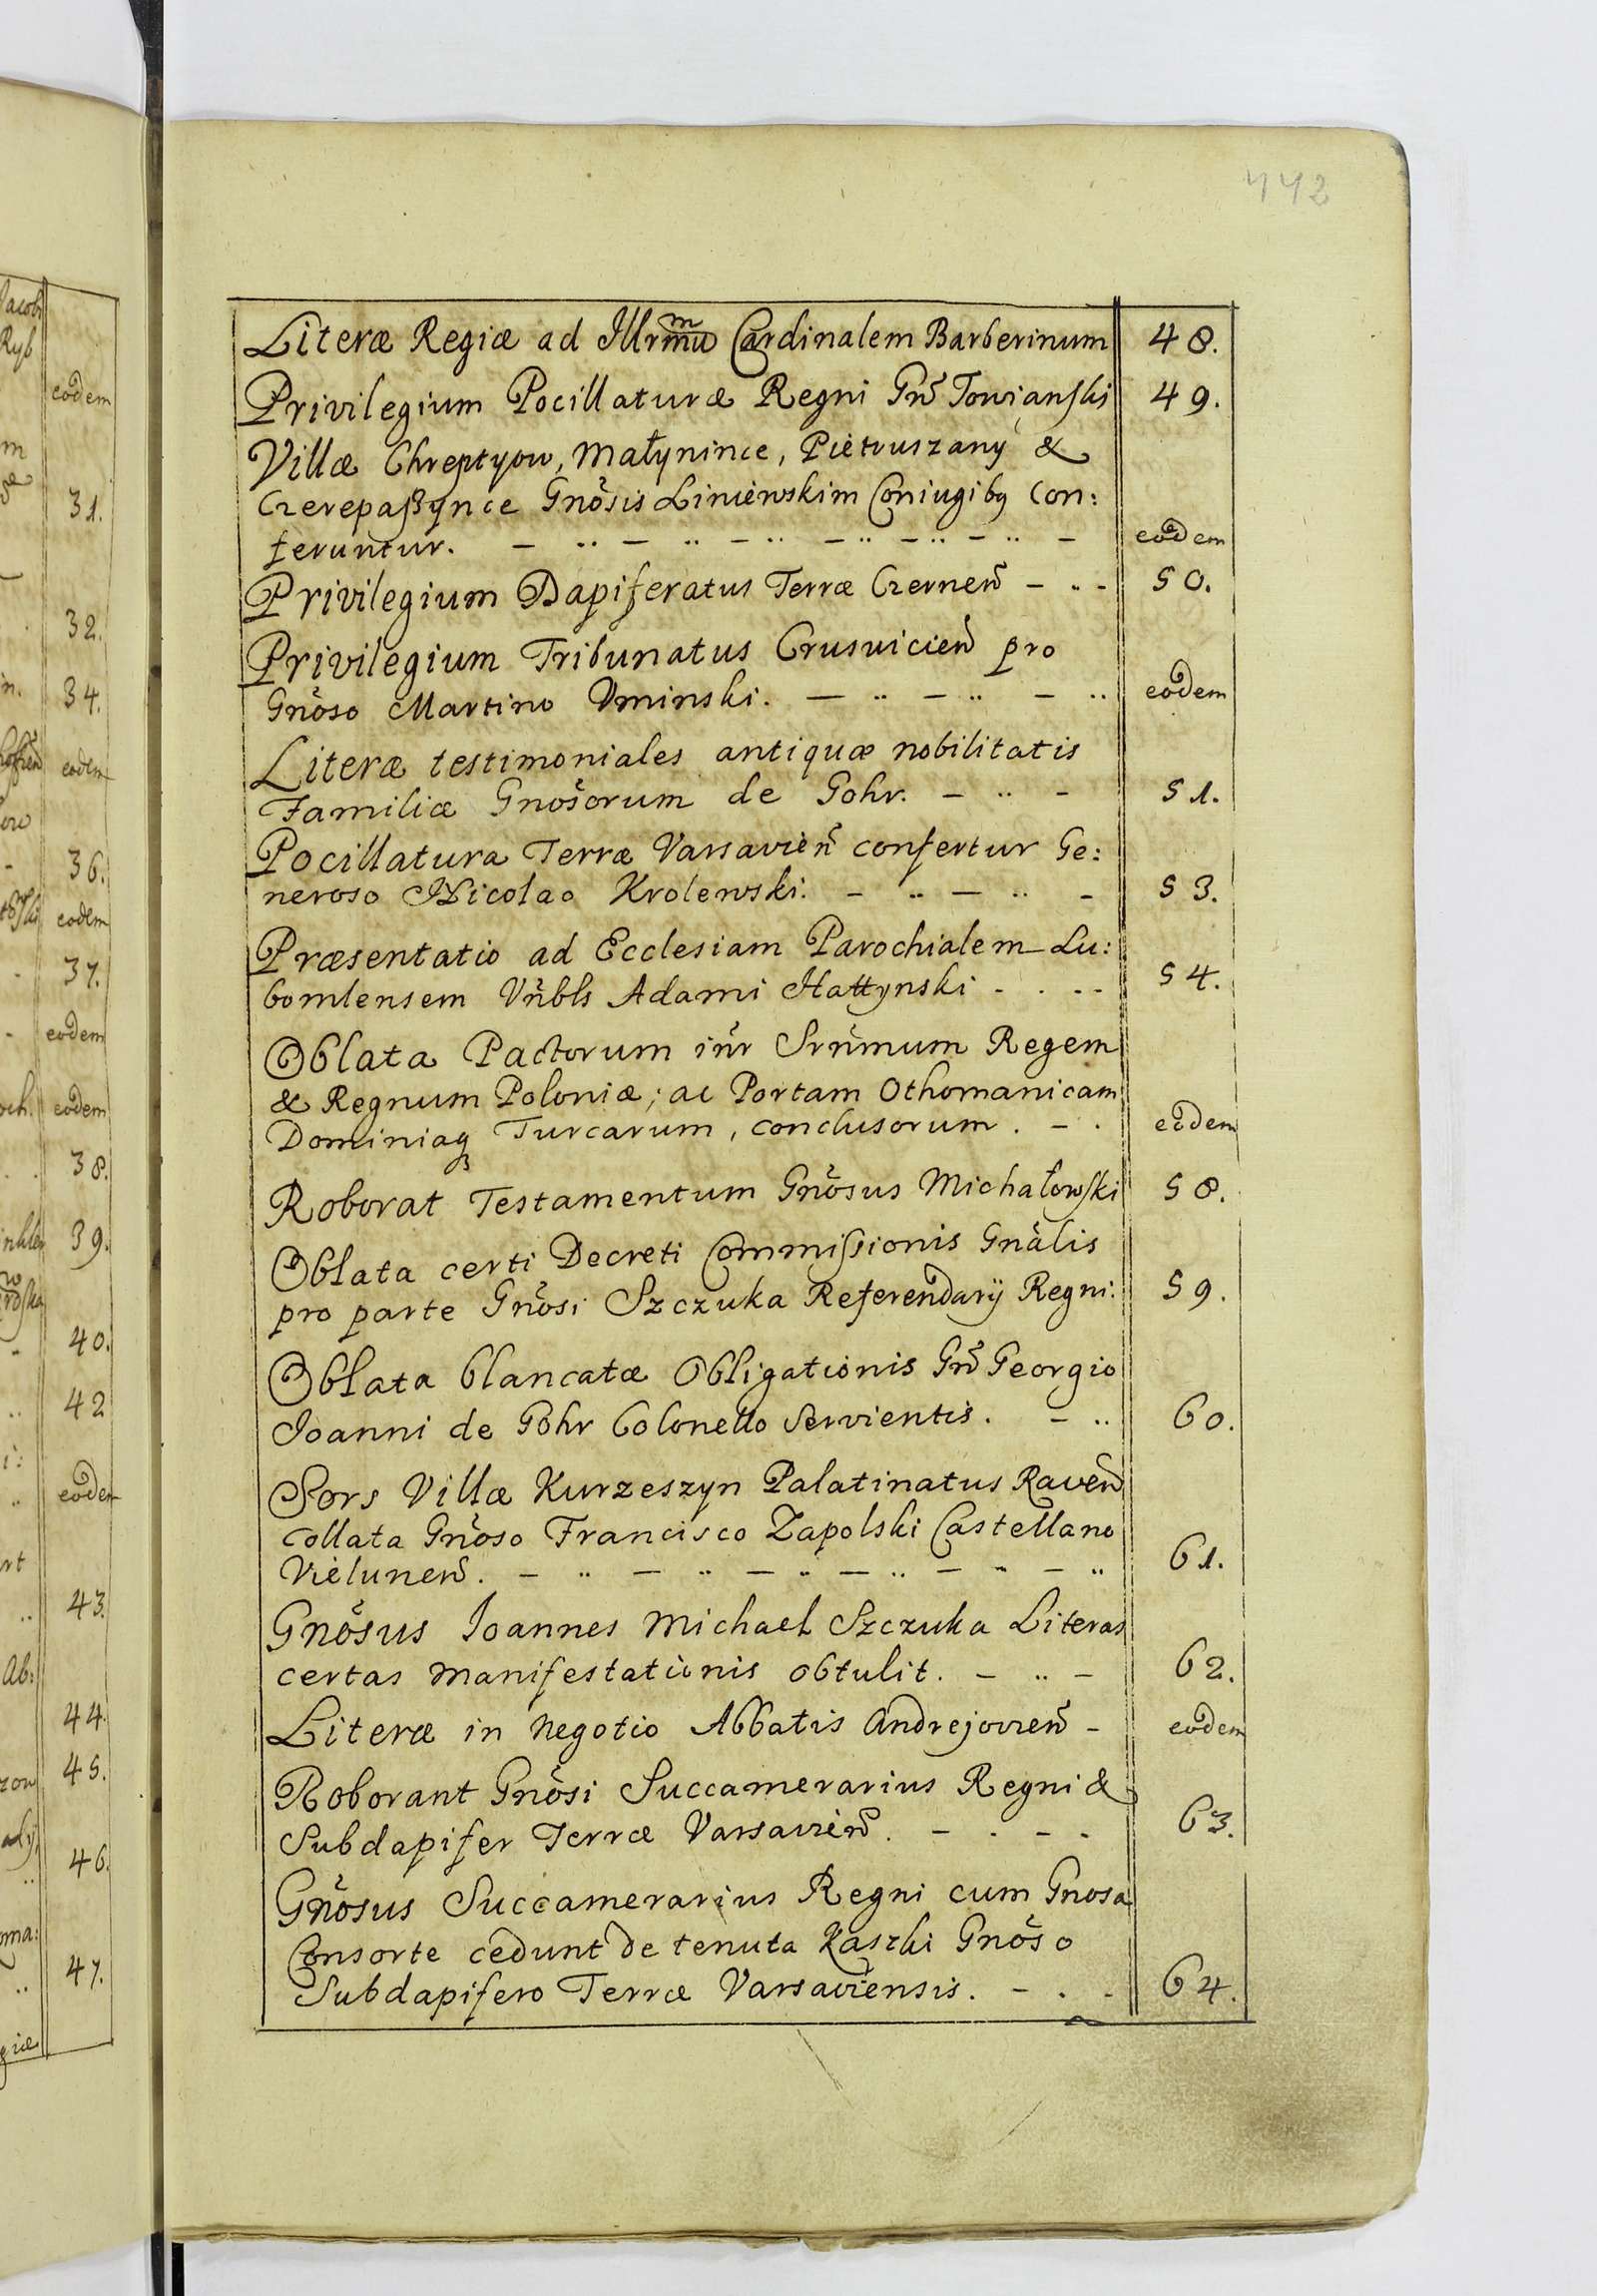 442
Literæ Regiæ ad Illrm̃u Cardinalem Barberinum 48.
Privilegium Pocillaturæ Regni Gñ Towianski 49.
Villæ Chreptyow, Małynince, Pietruszany &
Czerepaßynce Gnõsis Liniewskim Coniugibq Con:
feruntur. eodem
Privilegium Dapiferatus Terræ Czerneñ 50.
Privilegium Tribunatus Crusvicieñ pro
Gnõso Martino Vminski. eodem
Literæ testimoniales antiquæ nobilitatis
Familiæ Gnõsorum de Gohr. 51.
Pocillatura Terræ Varsavieñ confertur Ge:
neroso Nicolao Krolewski. 53.
Præsentatio ad Ecclesiam Parochialem Lu:
bomlensem Vñbls Adami Hattynski 54.
Oblata Pactorum iñr Srñmum Regem
& Regnum Poloniæ; ac Portam Othomanicam
Dominiaq Turcarum, conclusorum. eodem
Roborat Testamentum Gnõsus Michałowski 58.
Oblata certi Decreti Commissionis Gnãlis
pro parte Gnõsi Szczuka Referendarÿ Regni: 59.
Oblata blancatæ Obligationis Gñ Georgio
Ioanni de Gohr Colonello servientis. 60.
Sors Villæ Kurzeszyn Palatinatus Raveñ
collata Gnõso Francisco Zapolski Castellano
Vieluneñ. 61.
Gnõsus Ioannes Michael Szczuka Literas
certas manifestationis obtulit. 62.
Literæ in negotio Abbatis Andrejovieñ eodem
Roborant Gnõsi Succamerarius Regni &
Subdapifer Terræ Varsavieñ. 63.
Gnõsus Succamerarius Regni cum Gnosa
Consorte cedunt de tenuta Kaszki Gnõso
Subdapifero Terræ Varsaviensis. 64.
eodem
31.
32.
34.
eodem
36.
eodem
37.
eodem
eodem
38.
39.
40.
42
eodem
43.
44.
45.
46.
47.